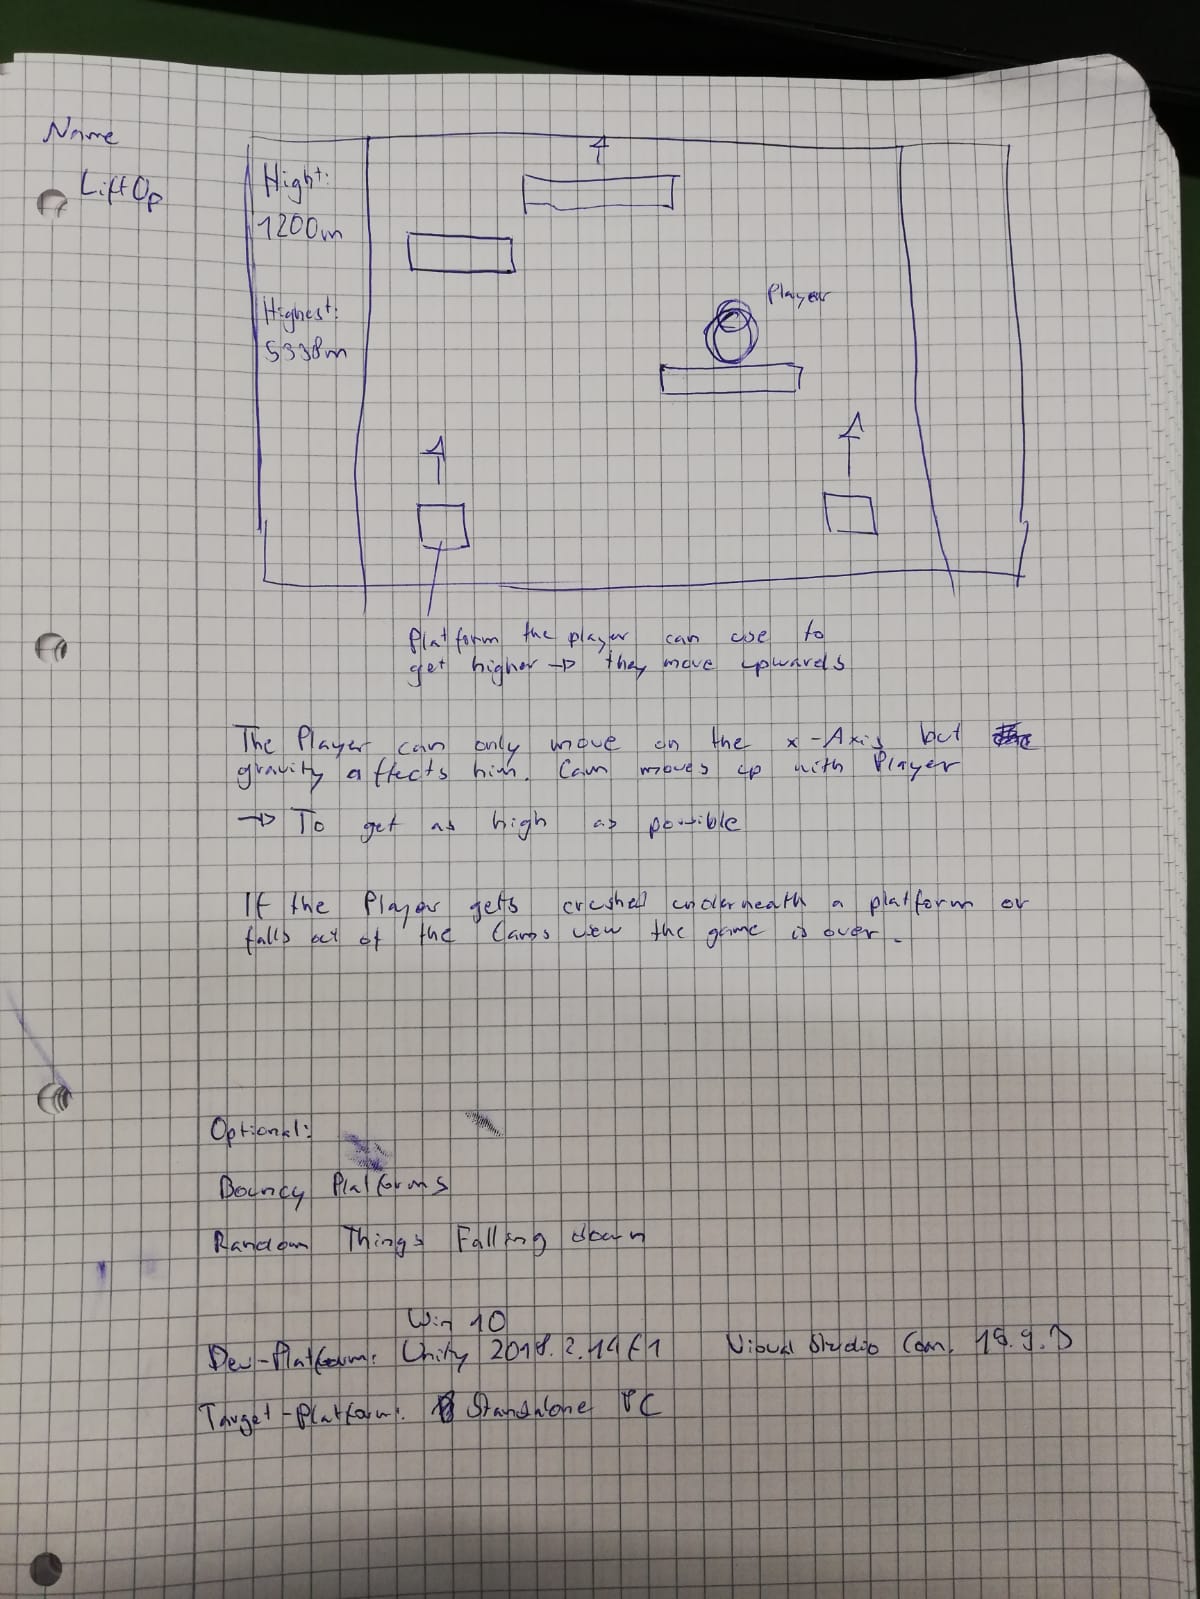 Name
LiftUp
Hight:
1200m
Highest:
5338m
Player
Platform the player can use to
get higher → they move upwards
The Player can only move on the x-Axis but
gravity affects him. Cam moves up with Player
→ To get as high as possible
If the Player gets crushed underneath a platform or
falls out of the Cams view the game is over.
Optional:
Bouncy Platforms
Random Things Falling down
Win 10
Dev-Platform: Unity 2018.2.14f1 Visual Studio Com.
Target-Platform: Standalone PC